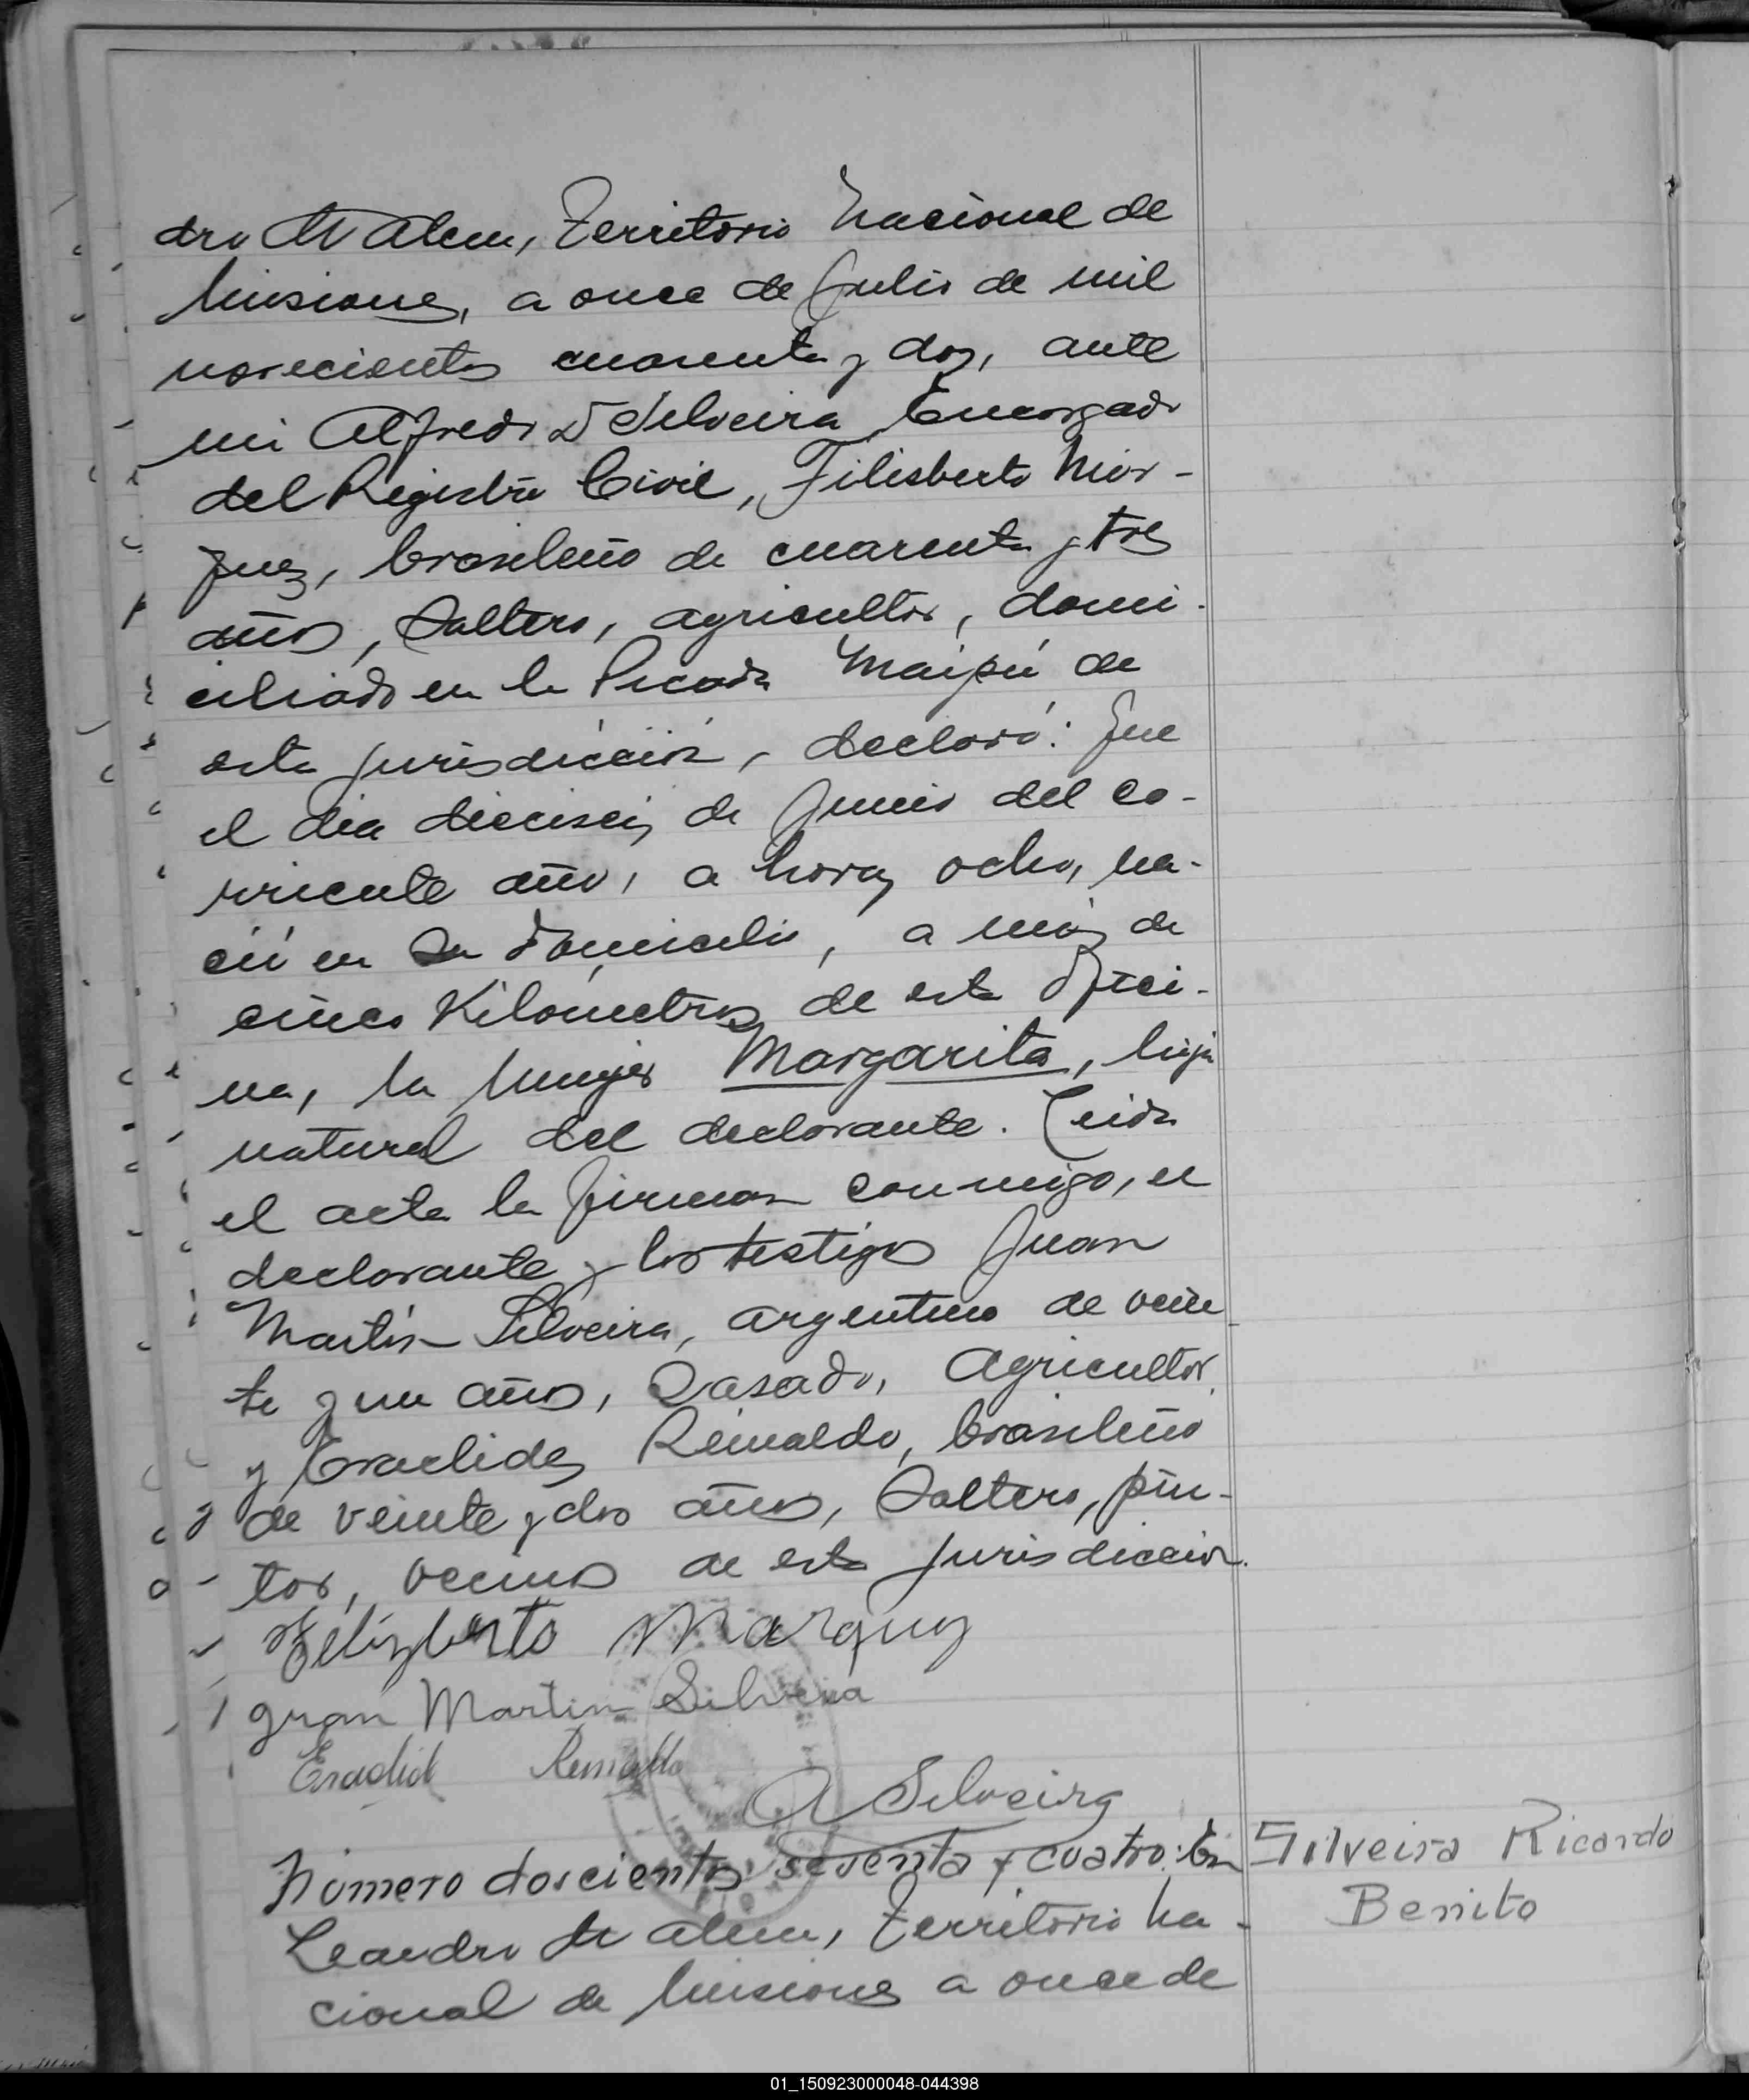 dro N Alem, Territorio Nacional de
Misiones, a once de Julio de mil
novecientos cuarenta y dos, ante
mi Alfredo D Silveira Encargado
del Registro Civil, Filisberto Mar-
quez, brasileño de cuarenta y tres
años, Soltero, agricultor, domi-
ciliado en la Picada Maipú de
esta jurisdicción, declaró: Que
el dia dieciseis de Junio del co-
rriente año, a horas ocho, na-
ció en su domicilio, a más de
cinco Kilómetros de esta Ofici-
na, la mujer Margarita, hija
natural del declarante. Leida
el acta la firman conmigo, el
declarante y los testigos Juan
Martin Silveira, argentino de vein
te y un años, Casado, Agricultor
y Eraclides Reinaldo, brasileño
de veinte y dos años, Soltero, pin-
tor, vecinos de esta jurisdiccion.
Felizberto Marquez
Juan Martin Silveira
Eraclid Reinaldo
A Silveira
Número doscientos setenta y cuatro: En
Leandro N Alem, Territorio Na-
cional de Misiones a once de
Silveira Ricardo
Benito
01_150923000048-044398